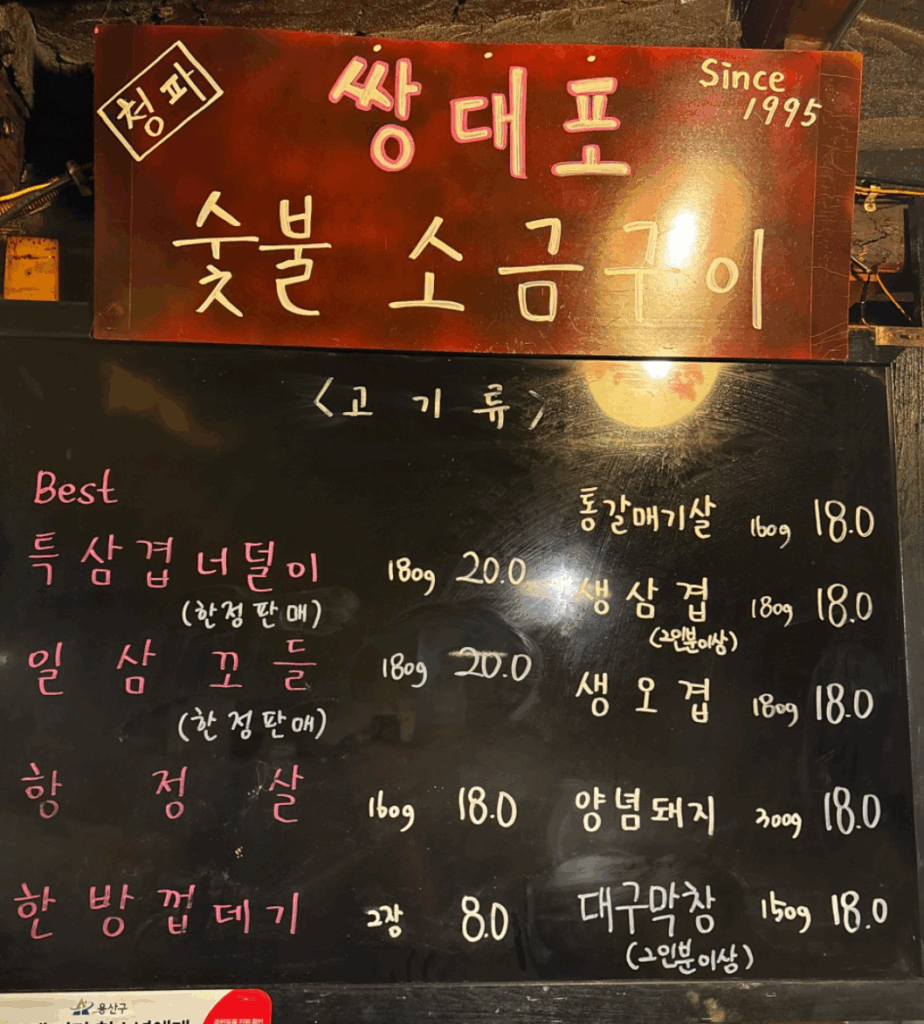 청파
쌍대포
Since
1995
숯불 소금구이
<고기류>
Best
특삼겹너덜이 180g 20.0
(한정판매)
일삼꼬들 180g 20.0
(한정판매)
항정살 160g 18.0
한방껍데기 2장 8.0
통갈매기살 160g 18.0
생삼겹 180g 18.0
(2인분이상)
생오겹 180g 18.0
양념돼지 300g 18.0
대구막창 150g 18.0
(2인분이상)
용산구